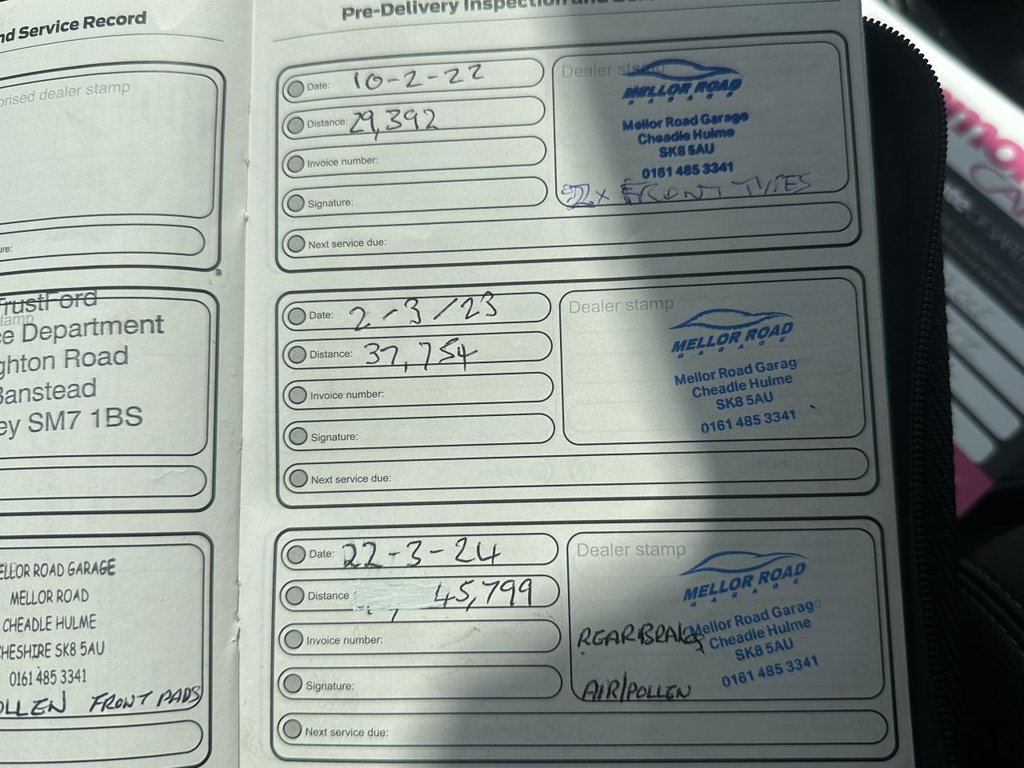 nd Service Record
rised dealer stamp
ure:
TrustFord
stamp
e Department
ghton Road
Banstead
ey SM7 1BS
ELLOR ROAD GARAGE
MELLOR ROAD
CHEADLE HULME
CHESHIRE SK8 5AU
0161 485 3341
OLLEN FRONT PADS
Pre-Delivery Inspection and
Date: 10-2-22
Distance: 29,392
Invoice number:
Signature:
Next service due:
Dealer stamp
MELLOR ROAD
GARAGE
Mellor Road Garage
Cheadle Hulme
SK8 5AU
0161 485 3341
2x FRONT TYRES
Date: 2-3/23
Distance: 37,754
Invoice number:
Signature:
Next service due:
Dealer stamp
MELLOR ROAD
GARAGE
Mellor Road Garag
Cheadle Hulme
SK8 5AU
0161 485 3341
Date: 22-3-24
Distance 45,799
Invoice number:
Signature:
Next service due:
Dealer stamp
MELLOR ROAD
GARAGE
Mellor Road Garage
Cheadle Hulme
SK8 5AU
0161 485 3341
REAR BRAKES
AIR/POLLEN